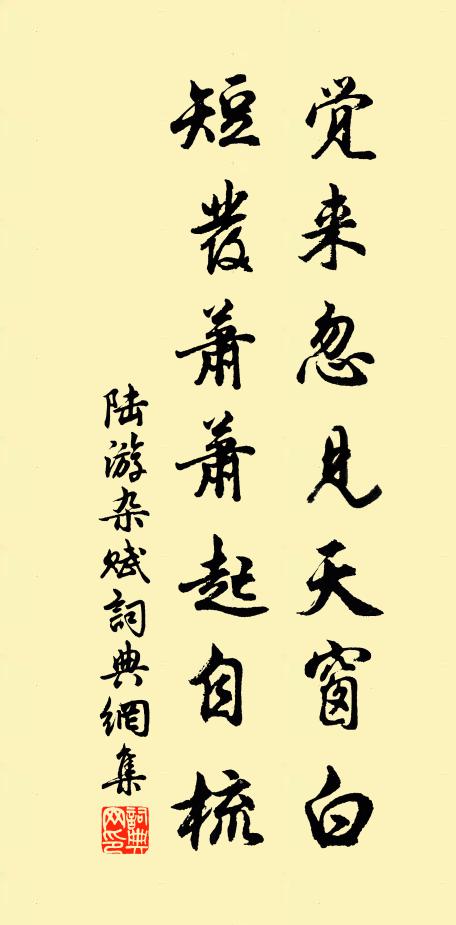 觉来忽见天窗白
短發萧萧起自梳
陆游杂赋詞典網集
詞典网印